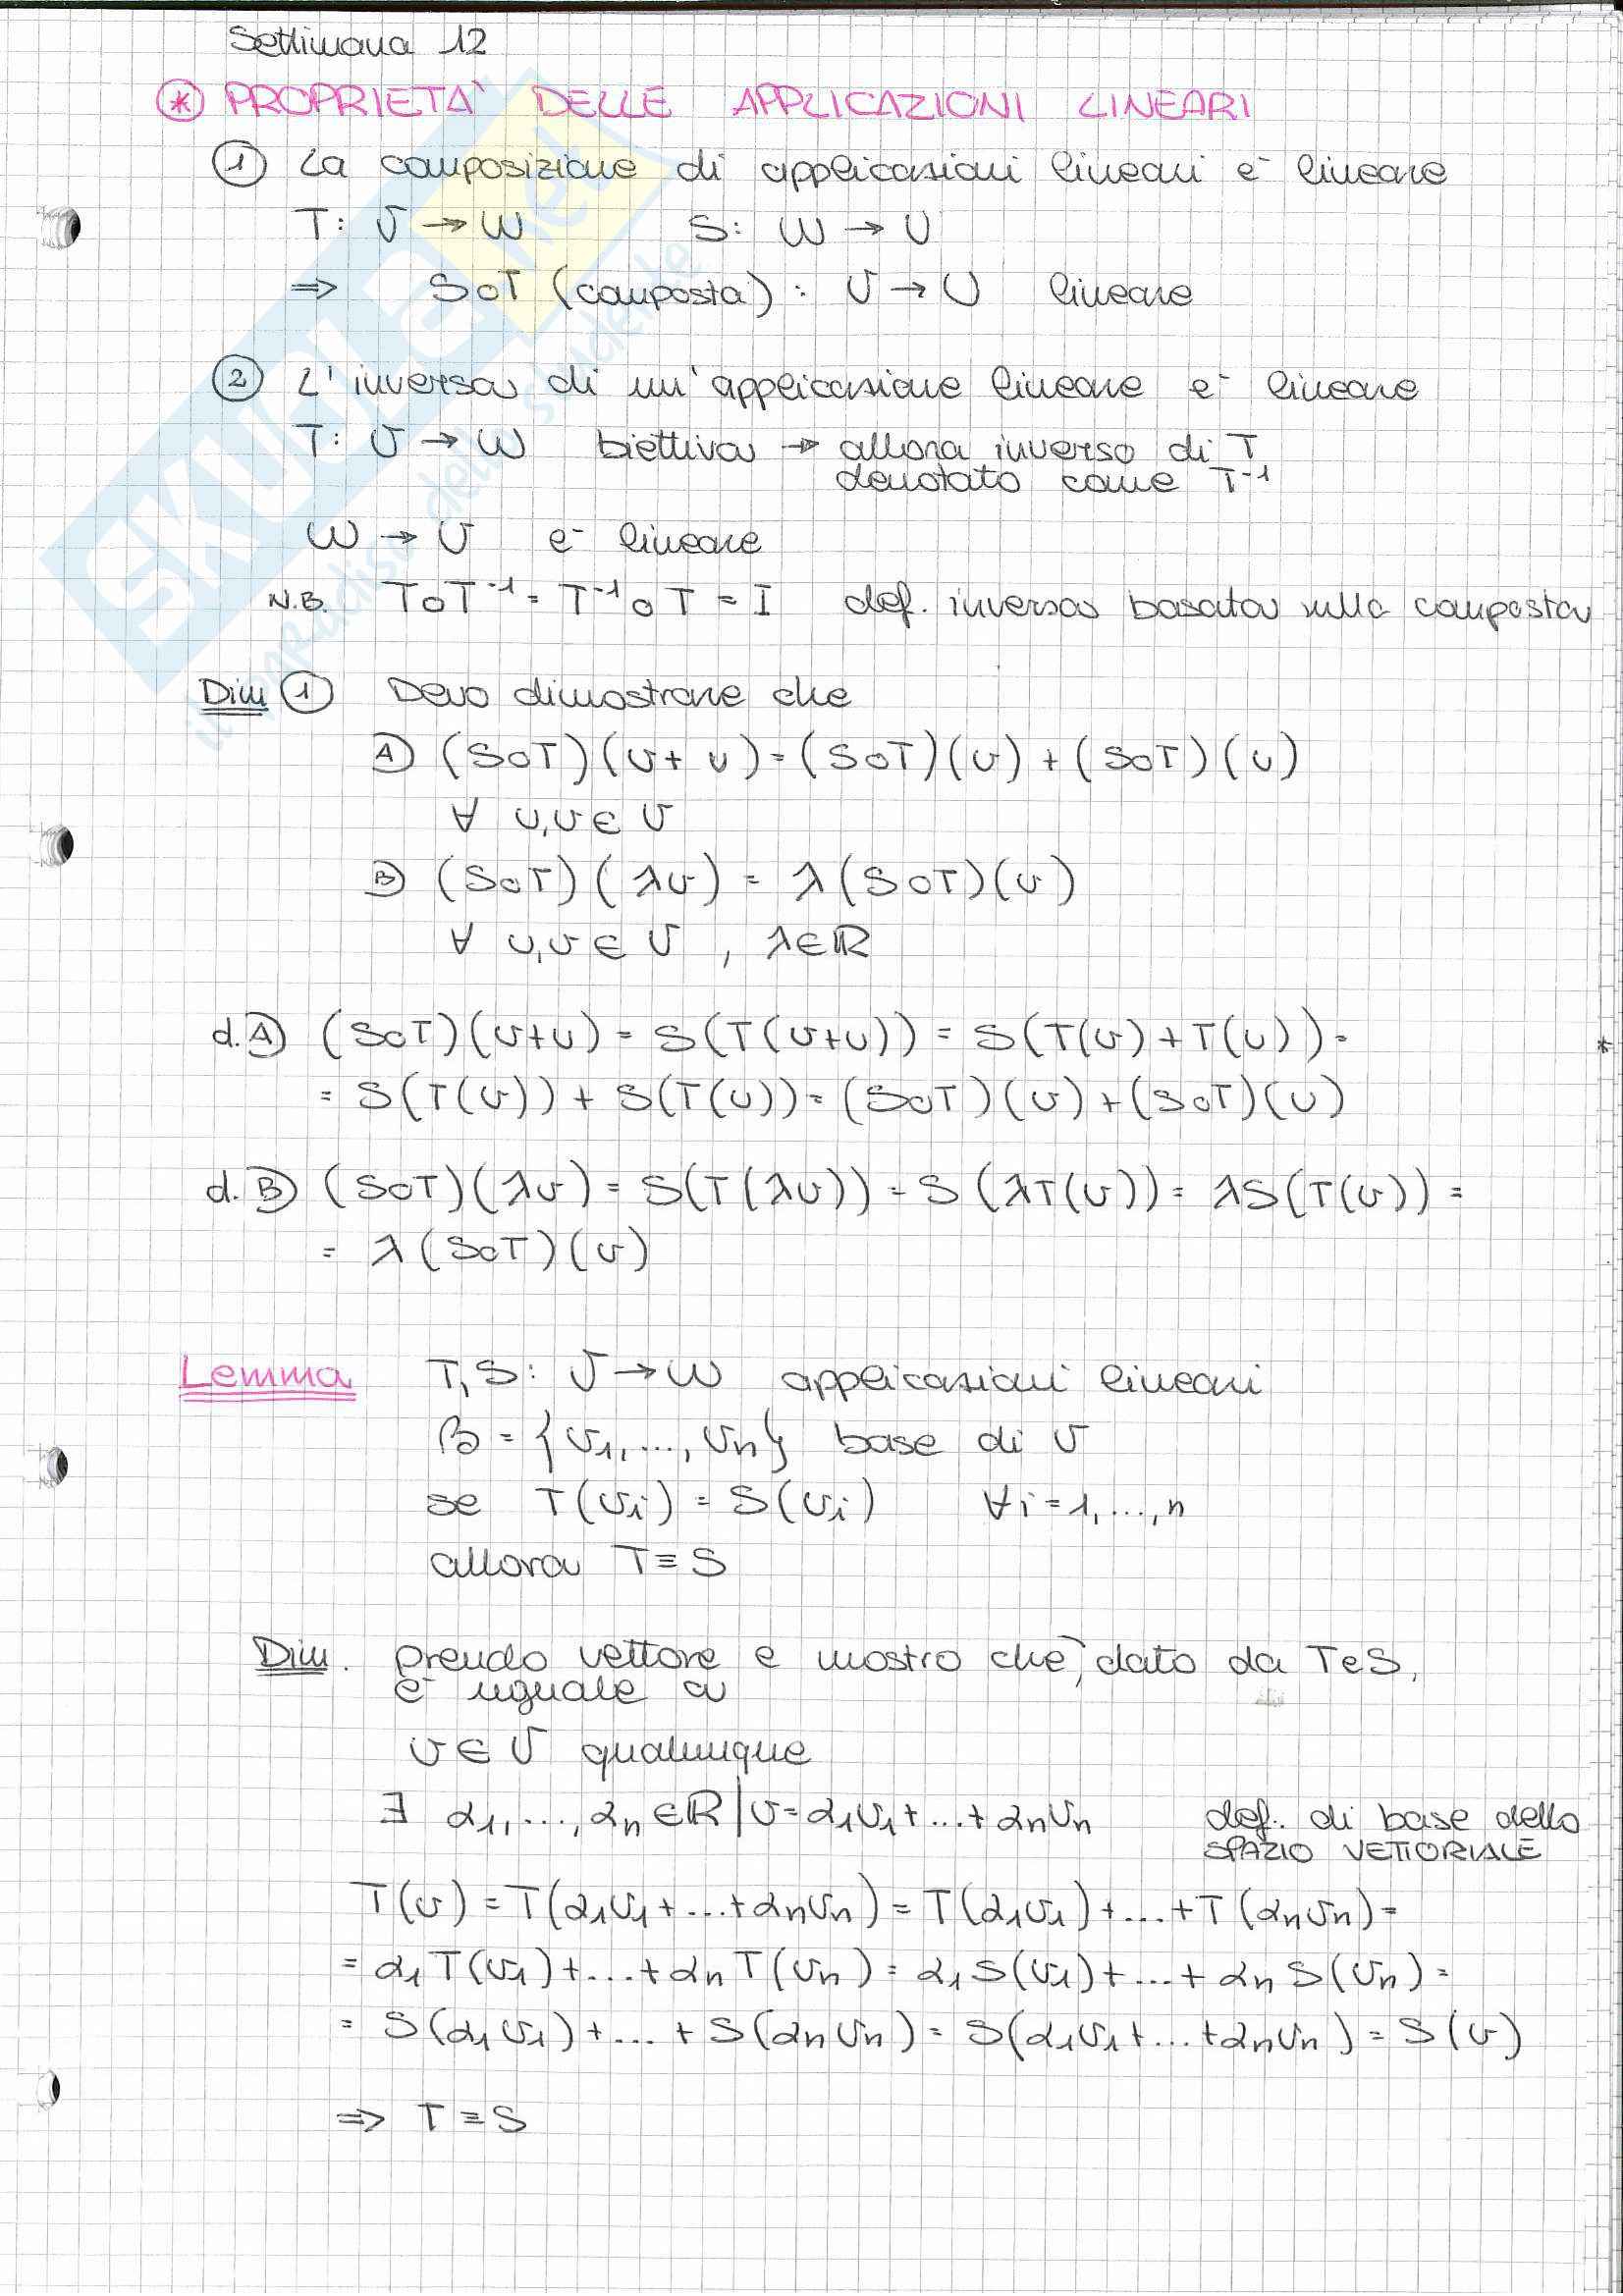 Settimana 12
* PROPRIETA' DELLE APPLICAZIONI LINEARI
1 La composizione di applicazioni lineari è lineare
T: V → W S: W → U
⇒ SoT (composta): V → U lineare
2 L'inversa di un'applicazione lineare è lineare
T: V → W biettiva → allora inverso di T
denotato come T⁻¹
W → V è lineare
N.B. ToT⁻¹ = T⁻¹oT = I def. inversa basata sulla composta
Dim 1 Devo dimostrare che
A (SoT)(v+u) = (SoT)(v) + (SoT)(u)
∀ u,v ∈ V
B (SoT)(λv) = λ(SoT)(v)
∀ u,v ∈ V, λ∈ℝ
d.A (SoT)(v+u) = S(T(v+u)) = S(T(v)+T(u)) = *
= S(T(v)) + S(T(u)) = (SoT)(v) + (SoT)(u)
d.B (SoT)(λv) = S(T(λv)) = S(λT(v)) = λS(T(v)) =
= λ(SoT)(v)
Lemma T,S: V → W applicazioni lineari
B = {v₁,...,vn} base di V
se T(vi) = S(vi) ∀i=1,...,n
allora T≡S
Dim. prendo vettore e mostro che, dato da T e S,
è uguale a
v ∈ V qualunque
∃ α₁,...,αn ∈ℝ | v=α₁v₁+...+αnvn def. di base dello
SPAZIO VETTORIALE
T(v) = T(α₁v₁+...+αnvn) = T(α₁v₁)+...+T(αnvn) =
= α₁T(v₁)+...+αnT(vn) = α₁S(v₁)+...+αnS(vn) =
= S(α₁v₁)+...+S(αnvn) = S(α₁v₁+...+αnvn) = S(v)
⇒ T≡S